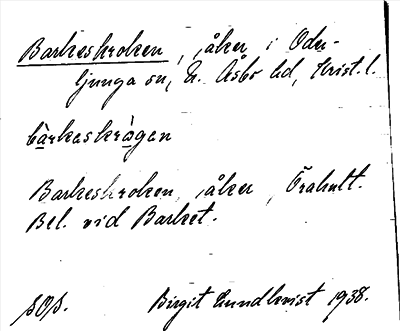 Barkeskroken, åker i Ode-
ljunga sn, N. Åsbo hd, Krist. l.
bàrkaskrågen
Barkeskroken, åker, Örahult.
Bel. vid Barket.
Birgit Lundkvist 1938.